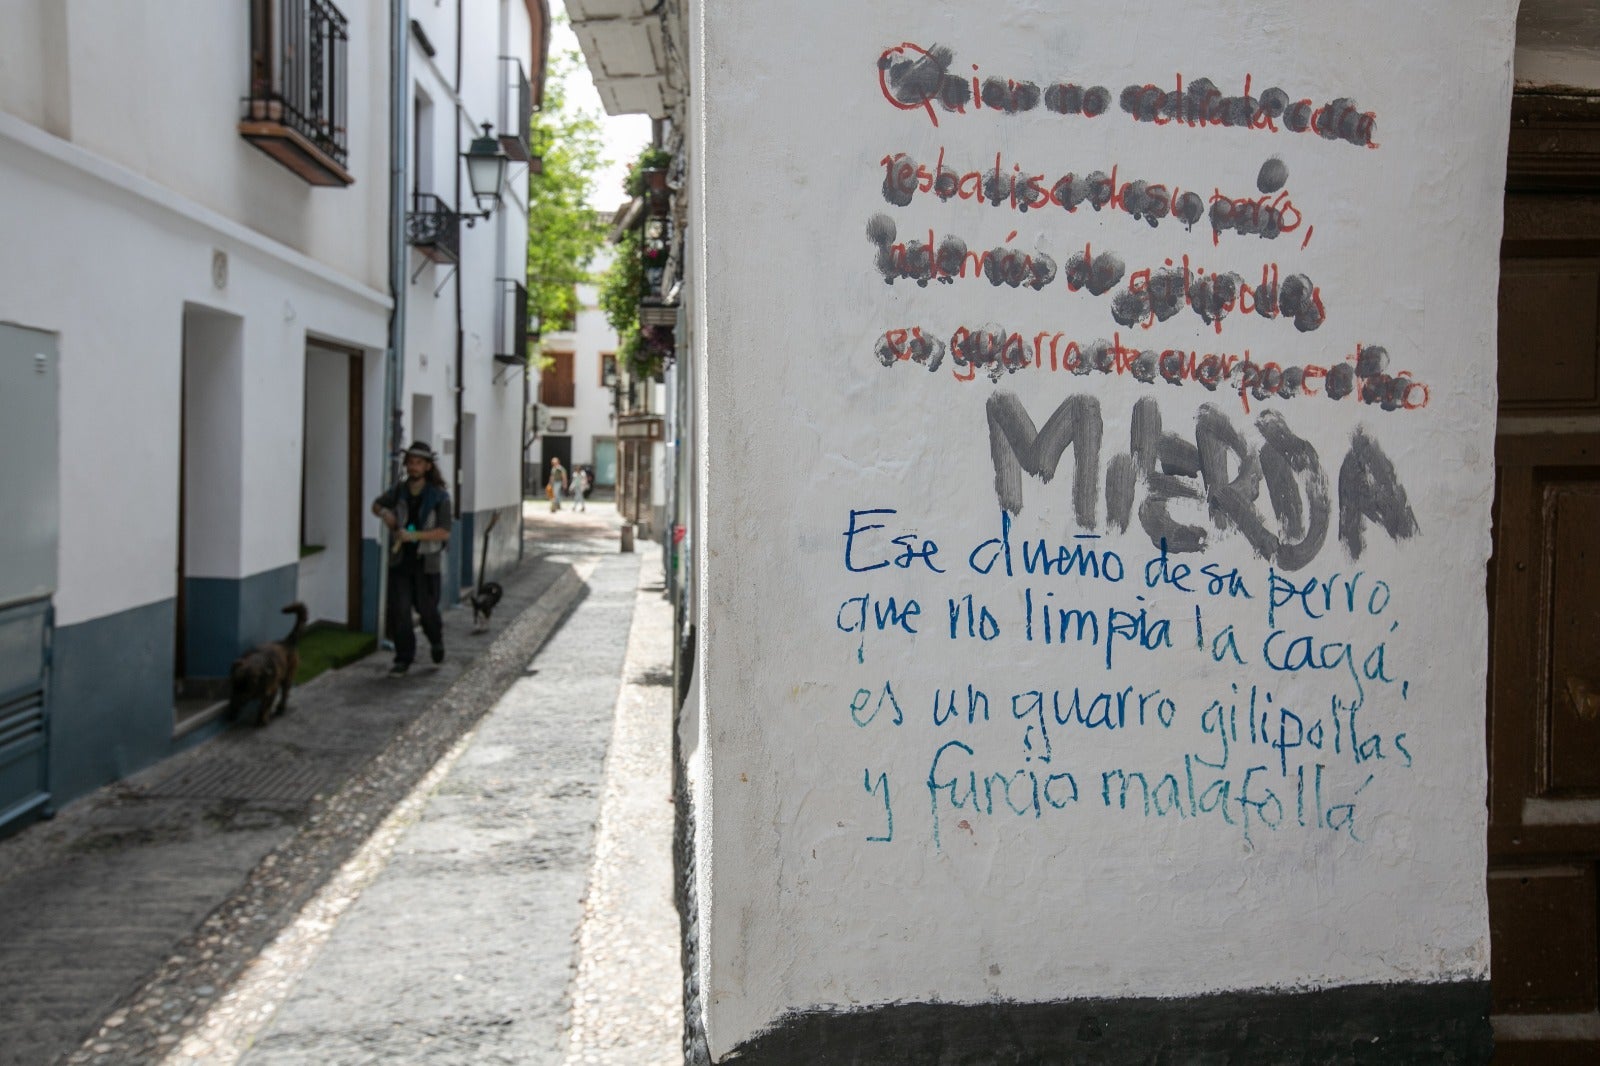 Quien no retira la caca
resbalisa de su perro,
además de gilipollas
es guarro de cuerpo entero
MIERDA
Ese dueño de su perro,
que no limpia la cagá,
es un guarro gilipollas
y furcio malafollá